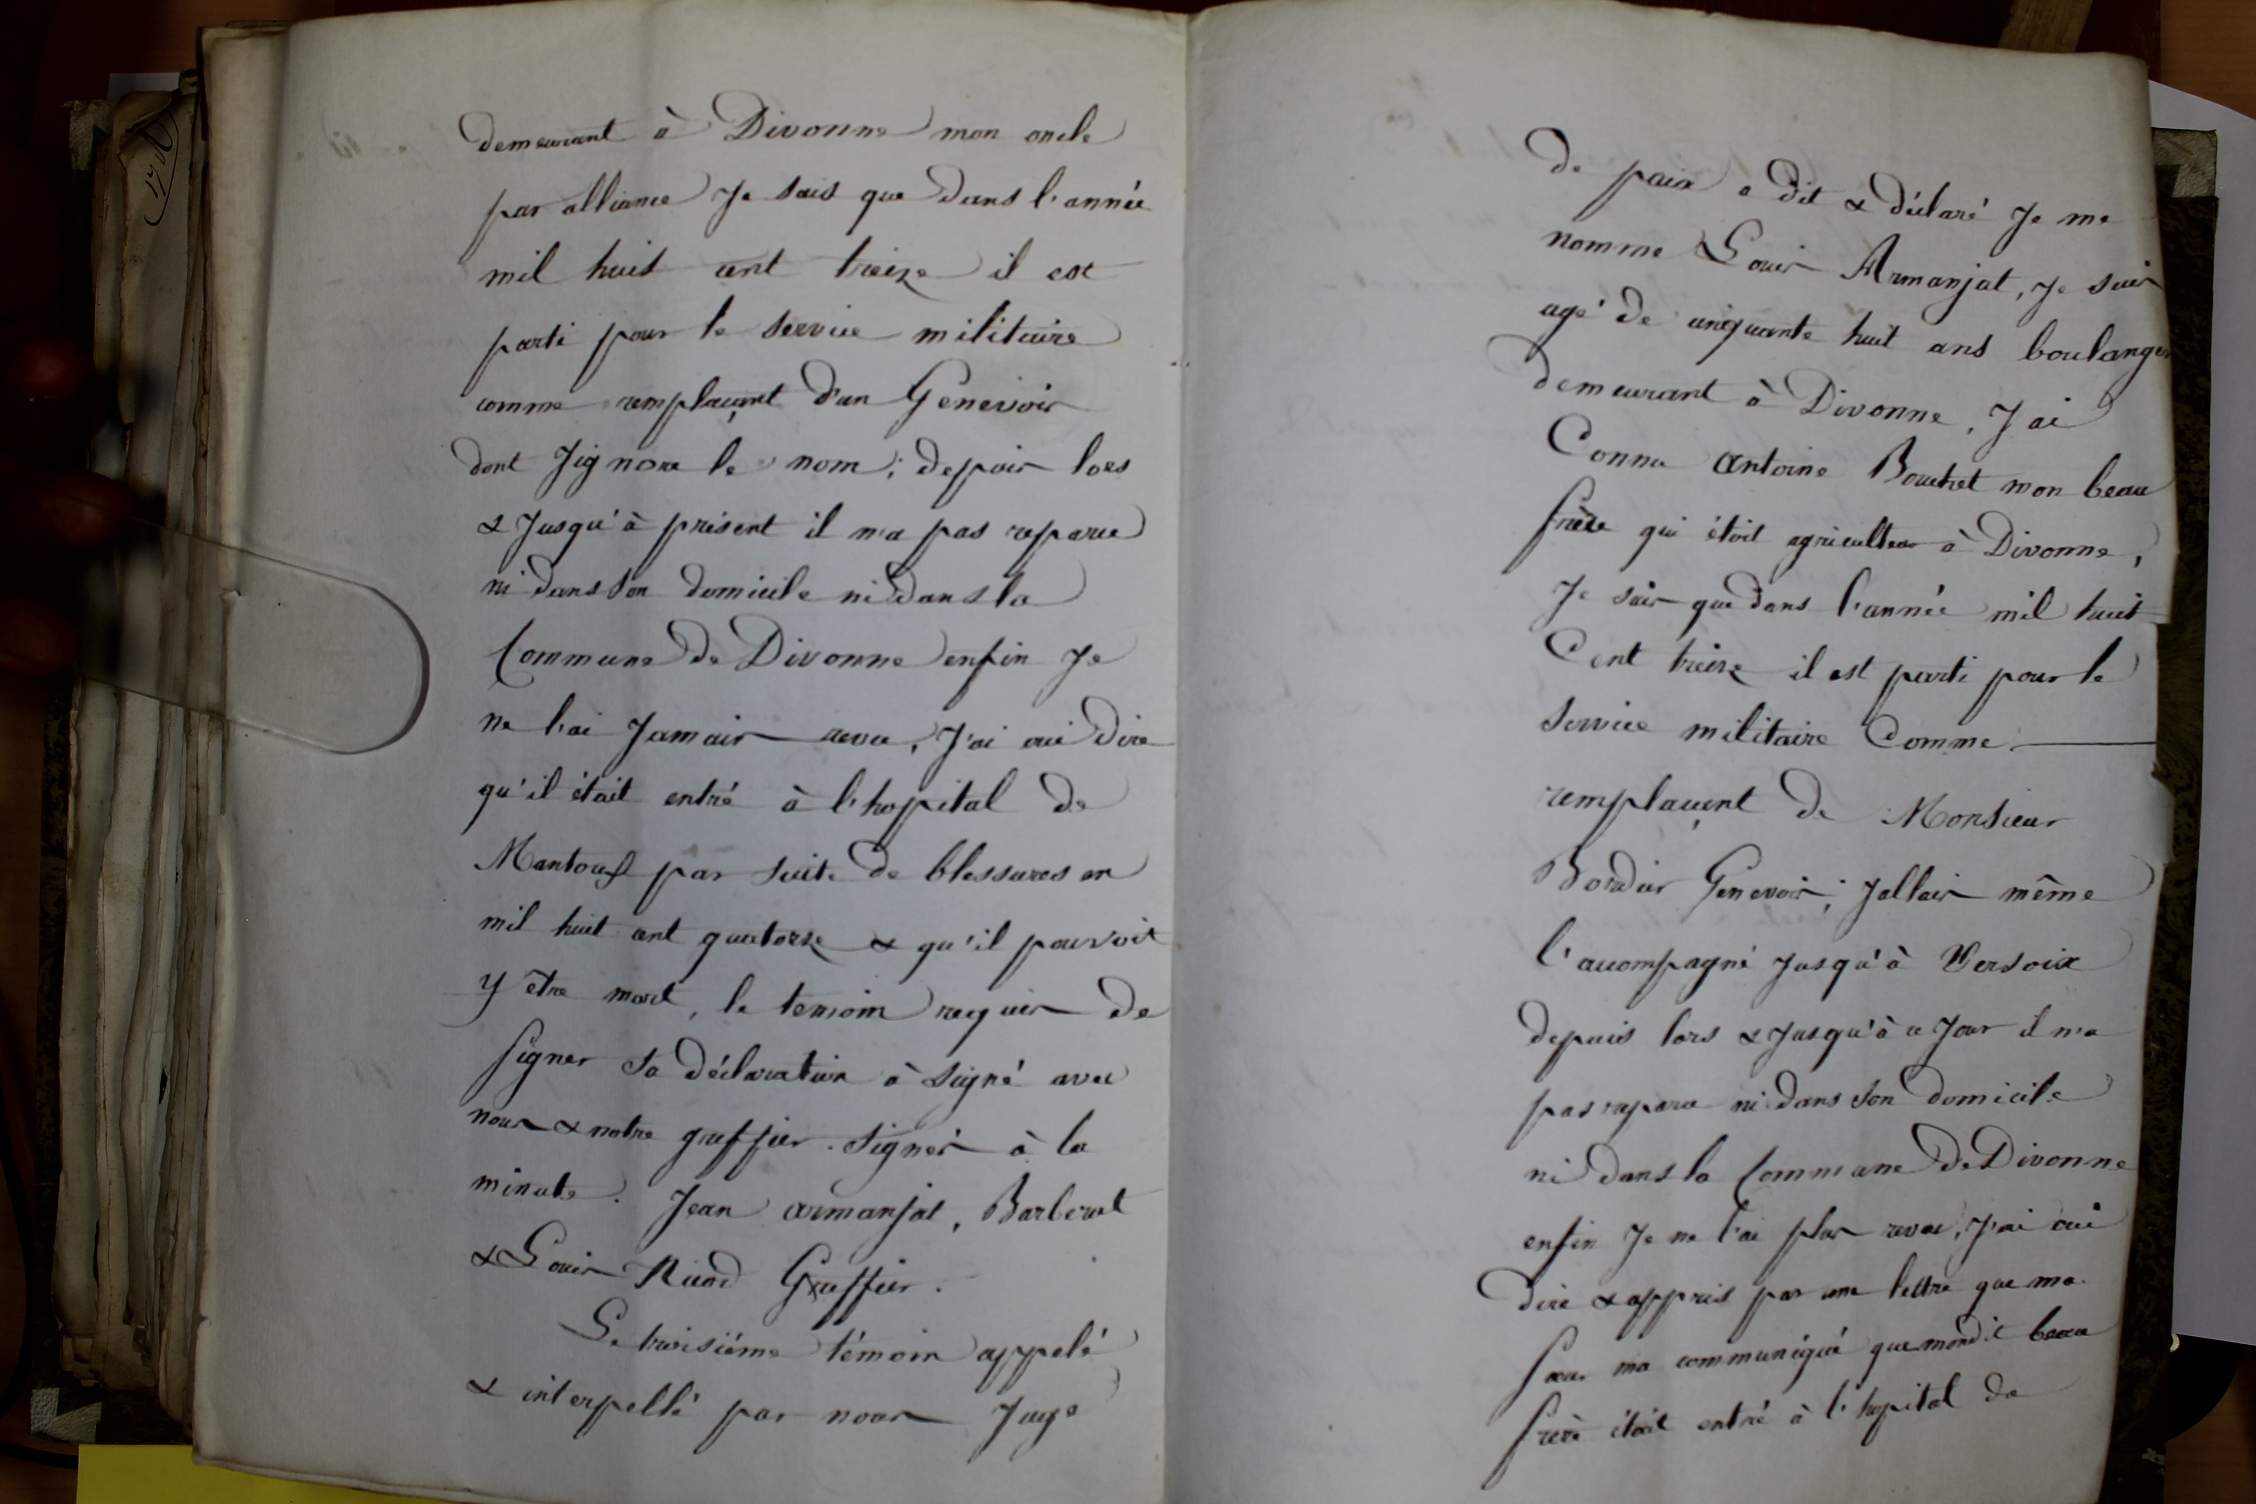 demeurant à Divonne mon oncle
par alliance Je sais que dans l'année
mil huit cent treize il est
parti pour le service militaire
comme remplaçant d'un Genevois
dont J'ignore le nom ; depuis lors
& Jusqu'à présent il n'a pas reparu
ni dans son domicile ni dans la
Commune de Divonne enfin Je
ne l'ai Jamais revu, J'ai oui dire
qu'il était entré à l'hopital de
Mantoue par suite de blessures en
mil huit cent quatorze & qu'il pouvoit
y être mort, le temoin requis de
signer sa déclaration à signé avec
nous & notre greffier. Signés à la
minute. Jean armanjat, Barberat
& Louis Ricard Greffier.
Le troisiéme témoin appelé
& interpellé par nous Juge
de paix a dit & déclaré Je me
nomme Louis Armanjat, Je suis
agé de cinquante huit ans boulanger
demeurant à Divonne, J'ai
Connu Antoine Bouchet mon beau
frère qui étoit agriculteur à Divonne,
Je sais que dans l'année mil huit
Cent treize il est parti pour le
service militaire Comme
remplaçant de Monsieur
Bordier Genevois ; Jallais même
l'accompagné Jusqu'à Versoix
depuis lors & Jusqu'à ce Jour il n'a
pas reparu ni dans son domicile
ni dans la Commune de Divonne
enfin Je ne l'ai plus revu, J'ai oui
dire & appris par une lettre que ma
sœur ma communiqué que mondit beau
frère étoit entré à l'hopital de